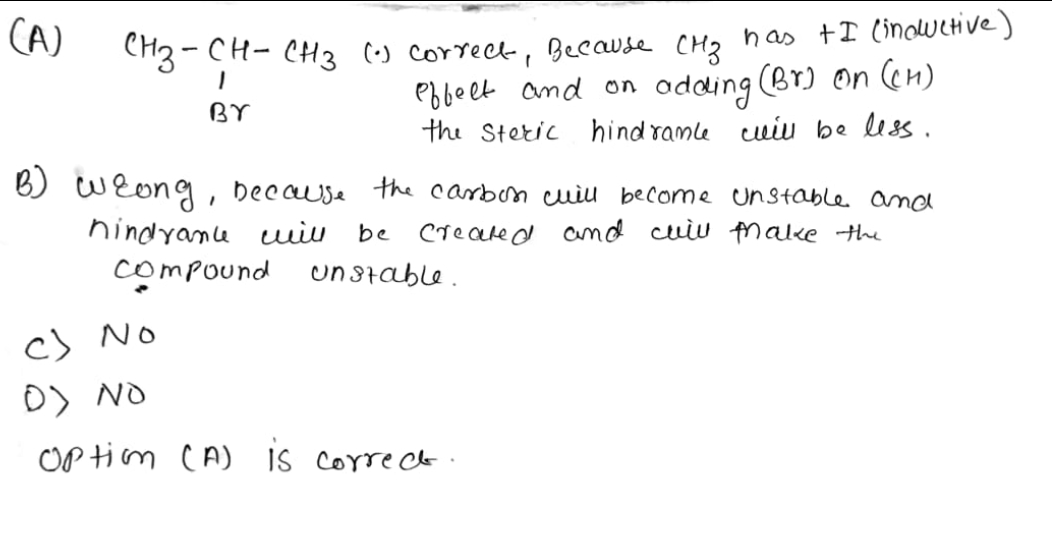 (A) CH3 - CH - CH3 (·) correct, Because CH3 has +I (inductive)
|
Br
effect and on adding (Br) on (CH)
the steric hindrance will be less.
B) Wrong, because the carbon will become unstable and
hindrance will be created and will make the
compound unstable.
C) NO
D) NO
Option (A) is correct.